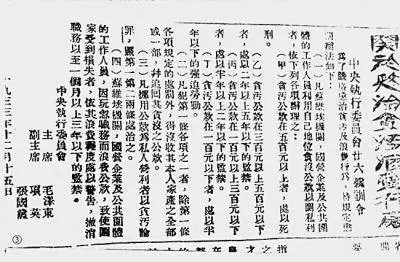 關於懲治貪污浪費行為
中央執行委員會廿六號訓令
為了嚴格懲治貪污及浪費行為，特規定懲
罰辦法如下：
（一）凡蘇維埃機關，國營企業及公共團
體的工作人員利用自己地位貪沒公款以圖私利
者，依下列各項辦理之：
（甲）貪污公款在五百元以上者，處以死
刑。
（乙）貪污公款在三百元以上五百元以下
者，處以二年以上五年以下的監禁。
（丙）貪污公款在一百元以上三百元以下
者，處以半年以上二年以下的監禁。
（丁）貪污公款在一百元以下者，處以半
年以下的強迫勞動。
（二）凡犯第一條各項之一者，除第一條
各項規定的處罪外，得沒收其本人家產之全部
或一部，并追回其貪沒之公款。
（三）凡挪用公款為私人營利者以貪污論
罪，照第一第二兩條處治之。
（四）蘇維埃機關，國營企業及公共團體
的工作人員，因玩忽職務而浪費公款，致使國
家受到損失者，依其浪費程度處以警告，撤消
職務以至一個月以上三年以下的監禁。
中央執行委員會
主席 毛澤東
副主席 項英
張國燾
一九三三年十二月十五日
③